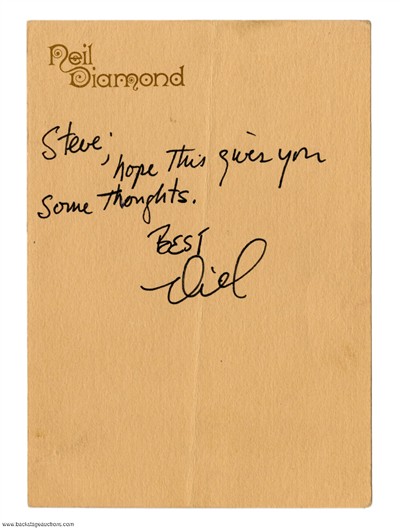 Neil
Diamond
Steve;
hope this gives you
some thoughts.
BEST
Neil
www.backstageauctions.com